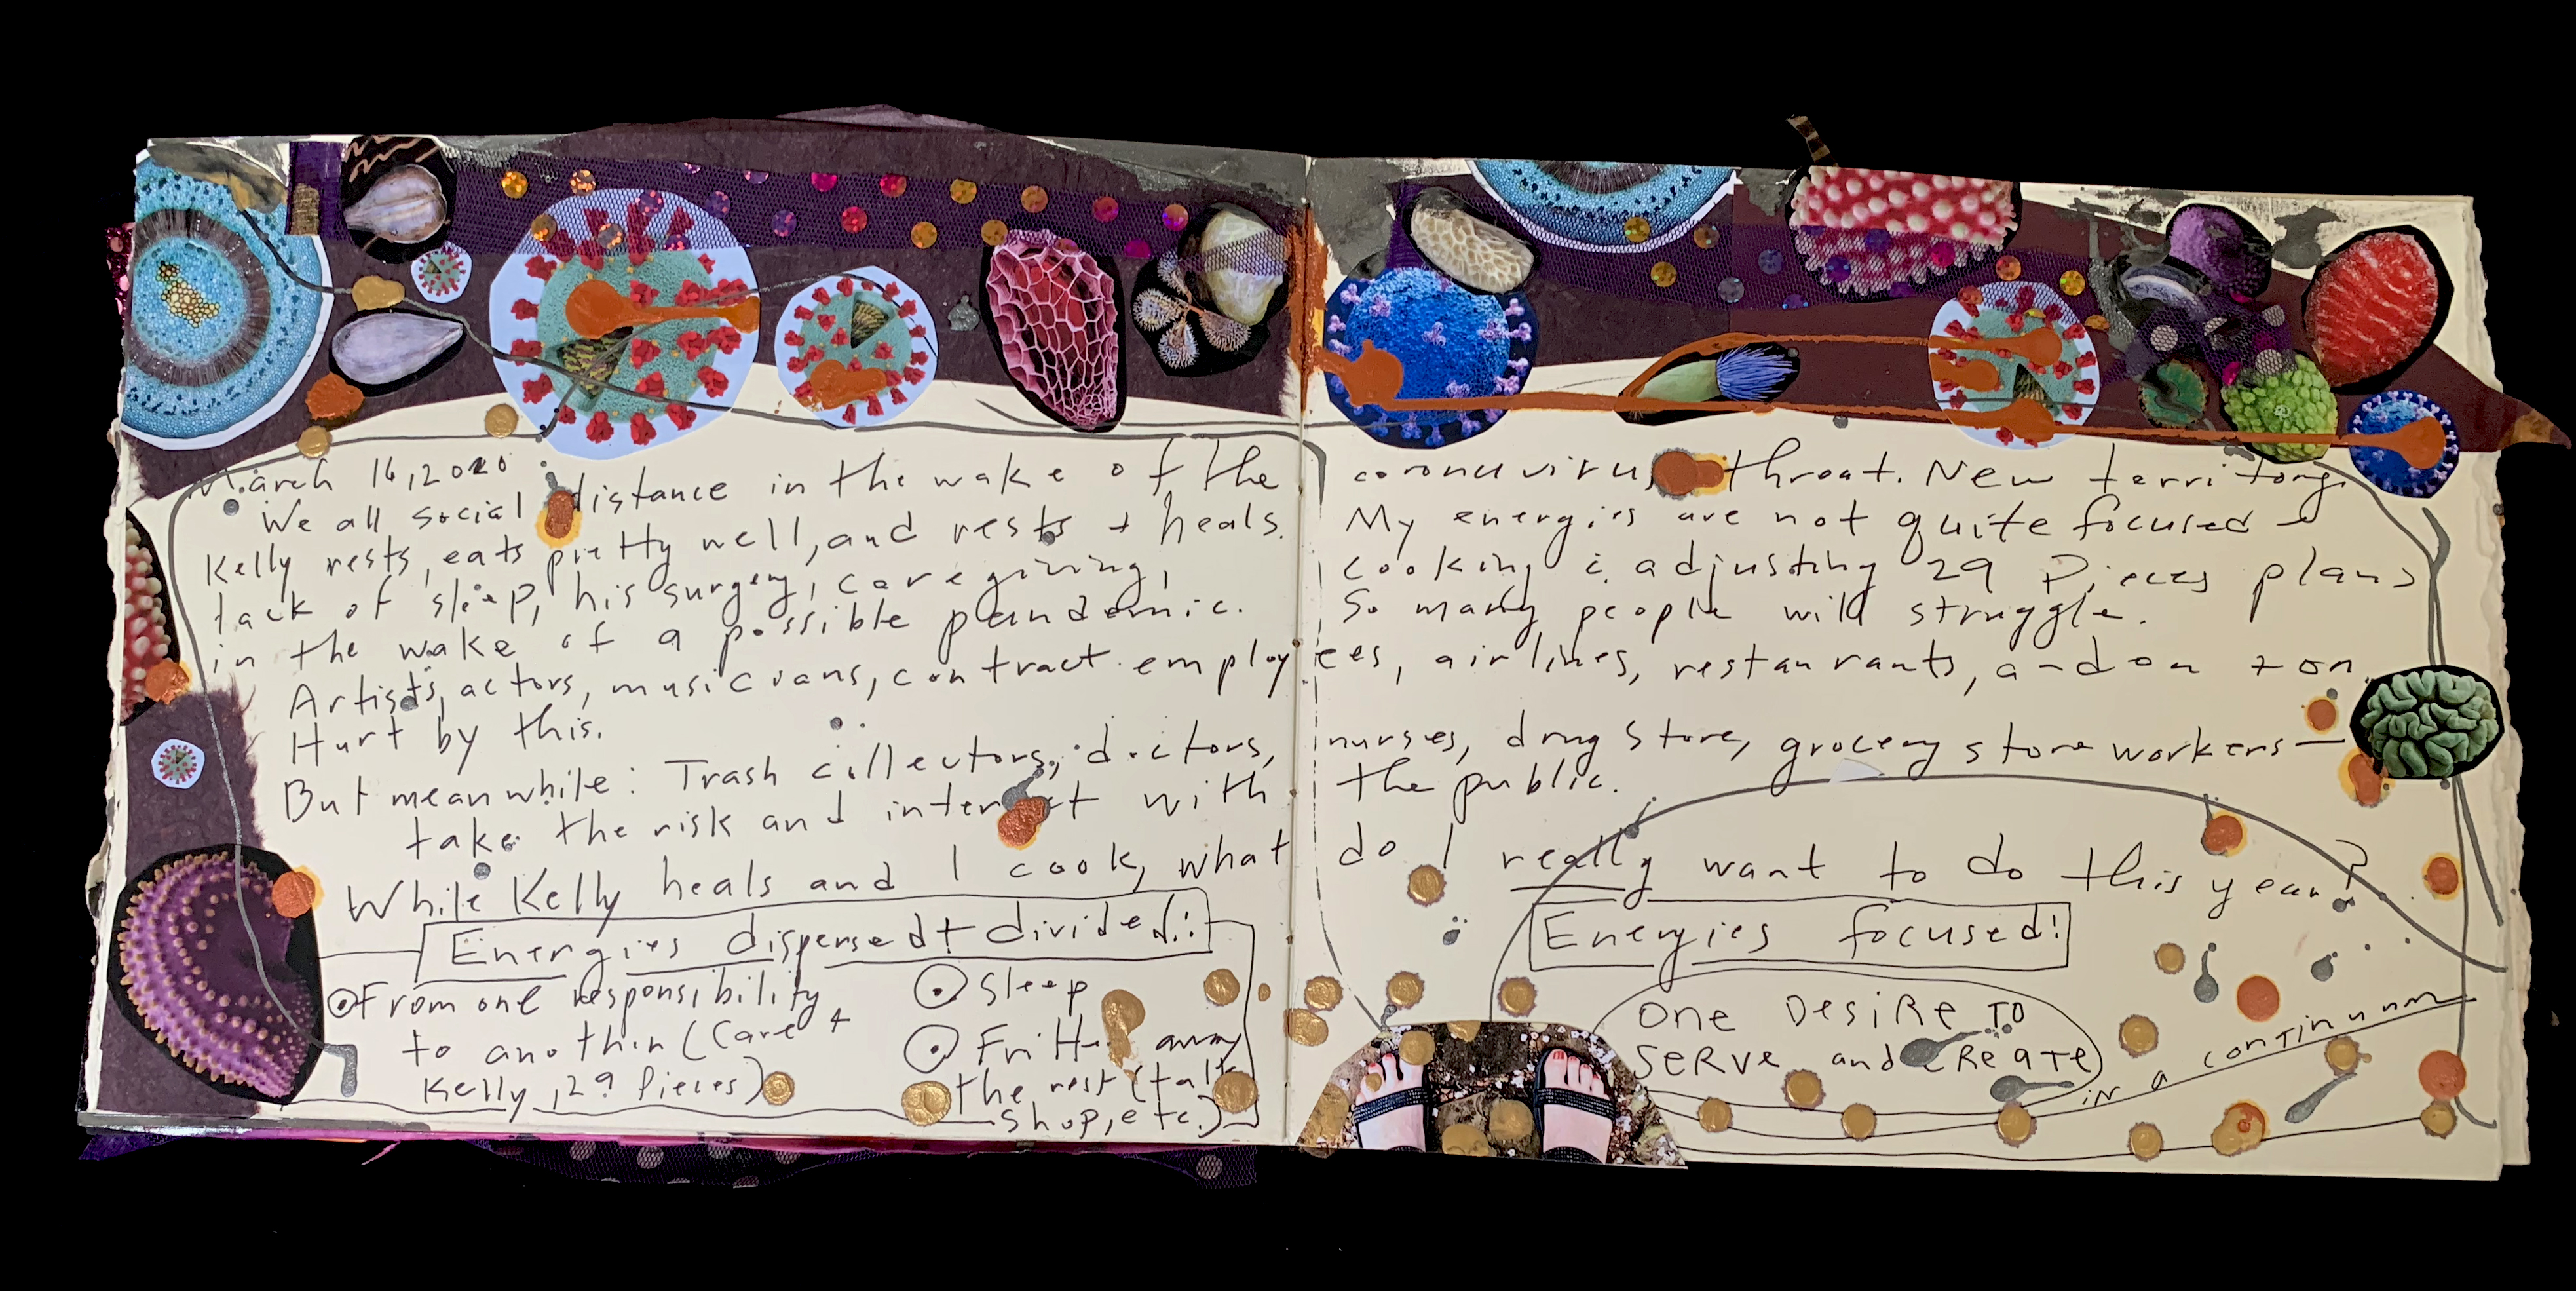 March 16, 2020
We all social distance in the wake of the coronavirus threat. New territory.
Kelly rests, eats pretty well, and rests + heals. My energies are not quite focused
lack of sleep, his surgery, caregiving, cooking & adjusting 29 Pieces plans
in the wake of a possible pandemic. So many people will struggle.
Artists, actors, musicians, contract employees, airlines, restaurants, and on + on.
Hurt by this.
But meanwhile: Trash collectors, doctors, nurses, drug store, grocery store workers—
take the risk and interact with the public.
While Kelly heals and I cook, what do I really want to do this year?
Energies dispersed + divided!:
⊙ From one responsibility
to another (Care +
Kelly, 29 Pieces)
⊙ Sleep
⊙ Fritter away
the rest (talk
shop, etc.)
Energies focused!
ONE DESIRE TO
SERVE and CREATE
IN A CONTINUUM